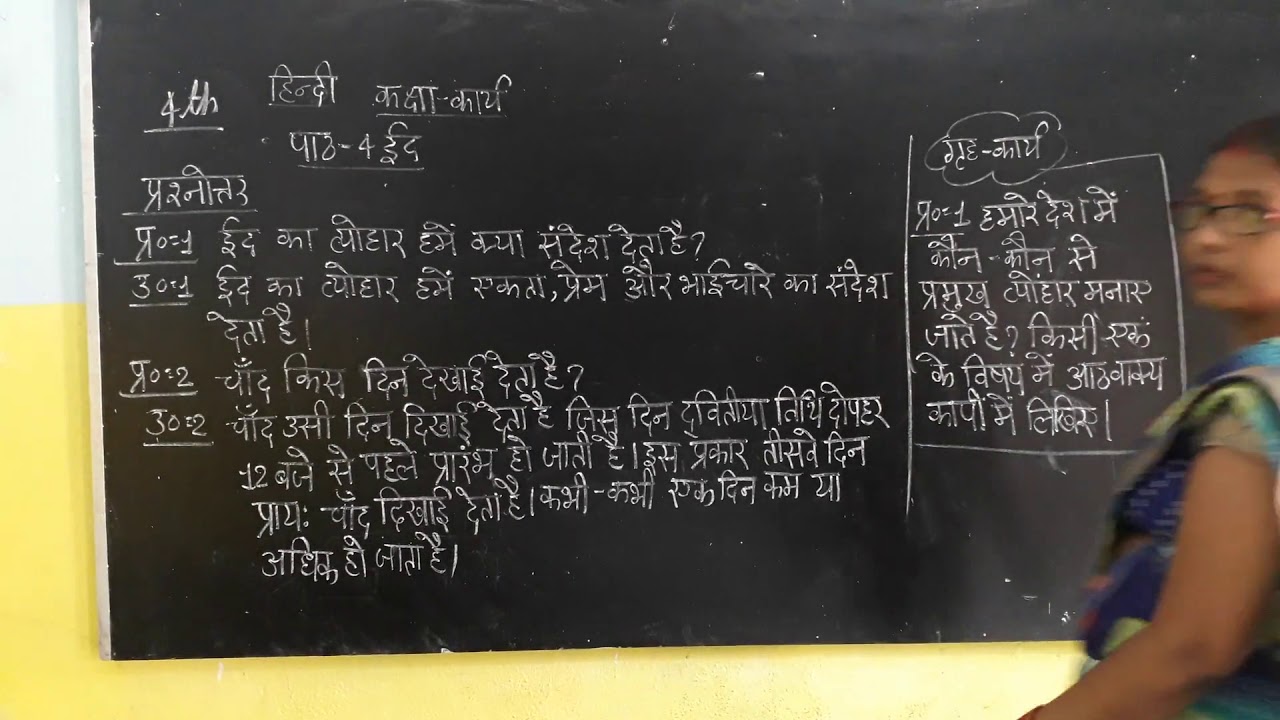 4th
हिन्दी कक्षा-कार्य
पाठ-4 ईद
प्रश्नोत्तर
प्र०=1 ईद का त्योहार हमें क्या संदेश देता है?
उ०=1 ईद का त्योहार हमें एकता, प्रेम और भाईचारे का संदेश
देता है।
प्र०=2 चाँद किस दिन देखाई देता है?
उ०=2 चाँद उसी दिन दिखाई देता है जिस दिन द्वितीया तिथि दोपहर
12 बजे से पहले प्रारंभ हो जाती है। इस प्रकार तीसवे दिन
प्रायः चाँद दिखाई देता है। कभी-कभी एक दिन कम या
अधिक हो जाता है।
गृह-कार्य
प्र०=1 हमारे देश में
कौन-कौन से
प्रमुख त्योहार मनाए
जाते है? किसी एक
के विषय में आठ वाक्य
कापी में लिखिए।